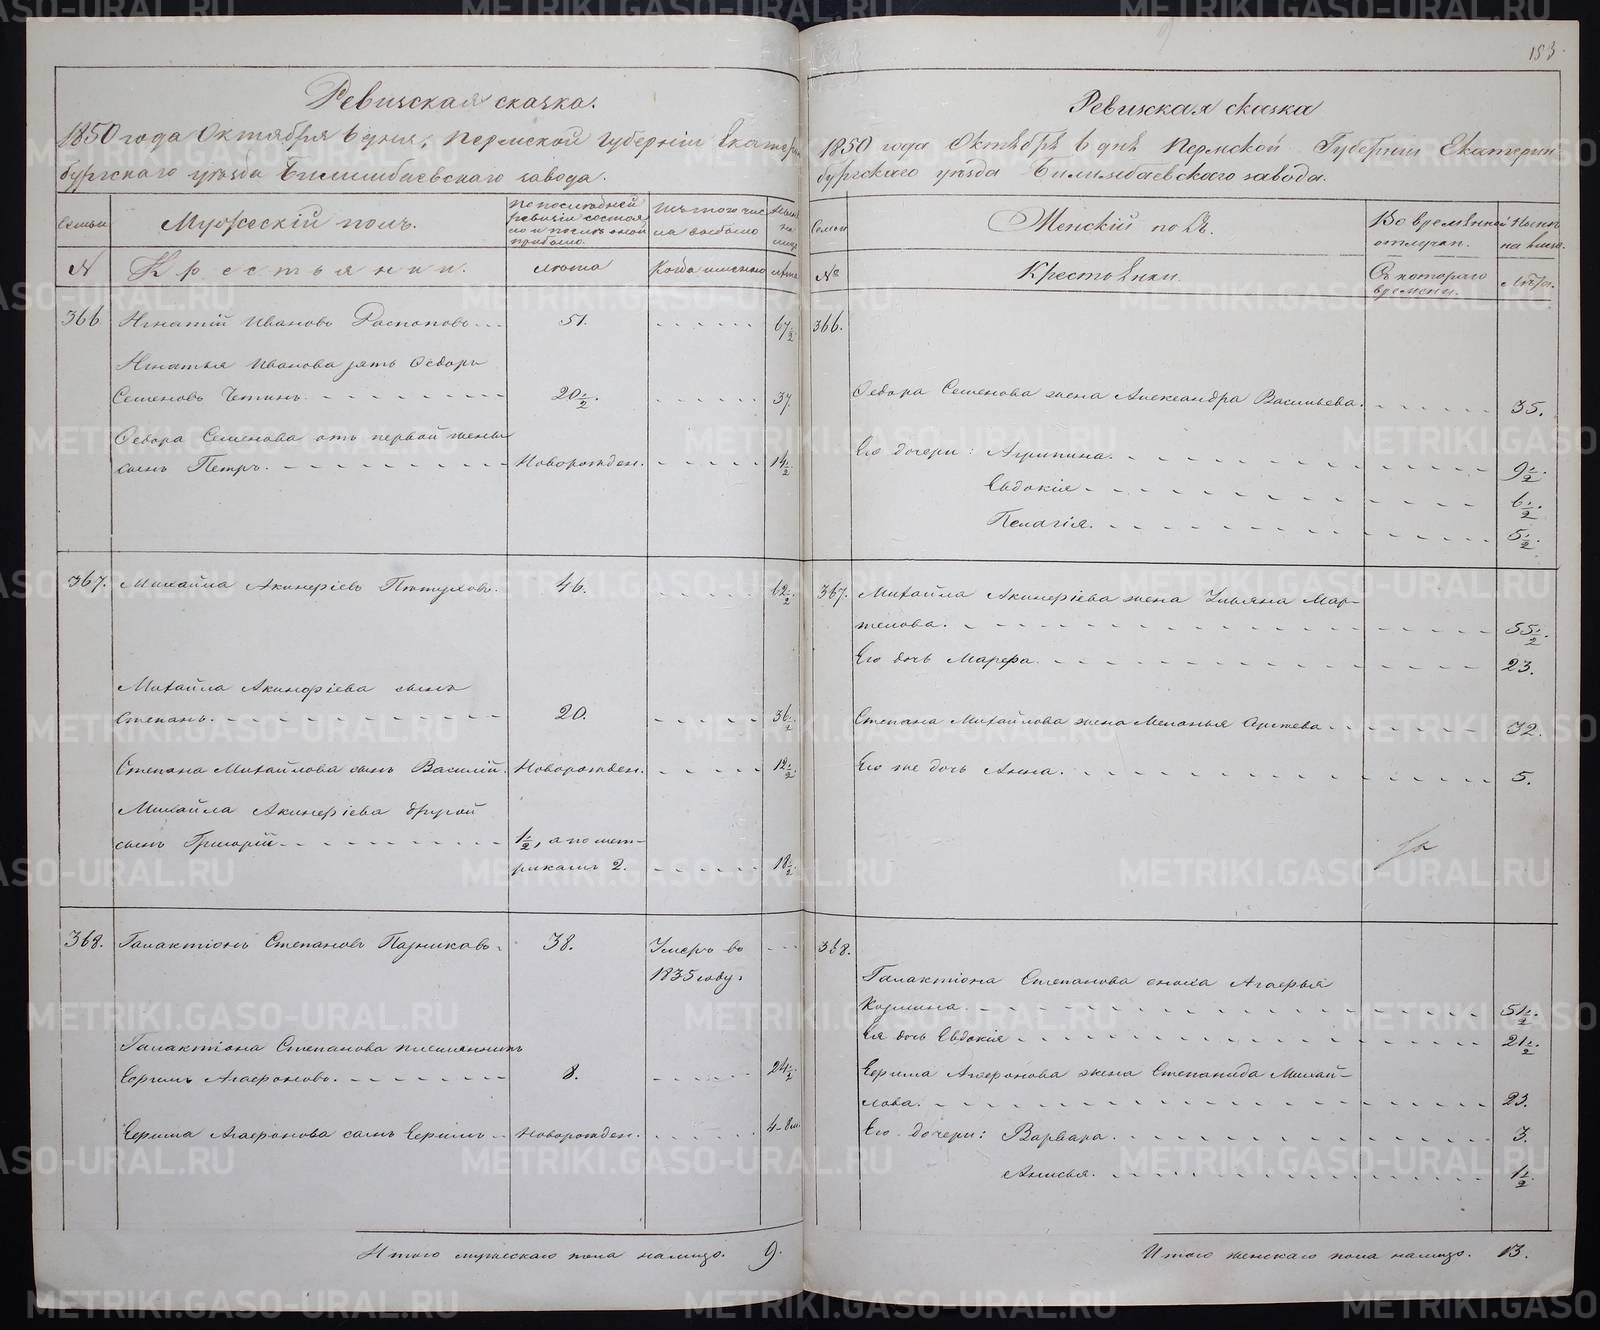 183.
Ревизская сказка.
1850 года Октября 6 дня, Пермской губерніи Екатерин
бургскаго уѣзда Билимбаевскаго завода.
Семьи
Мужескій полъ.
По послѣдней
ревизіи состоя
ло и послѣ оной
прибыло.
Изъ того чис
ла выбыло
Нынѣ
на
лицо
N
Крестьянини.
лѣта
Когда именно
лѣта
366
Игнатій Ивановъ Распоповъ
51.
67 1/2
Игнатья Иванова зять Ѳедоръ
Семеновъ Четинъ.
20 1/2.
37.
Ѳедора Семенова отъ первой жены
сынъ Петръ.
Новорожден.
14 1/2.
367.
Михайла Акинфіевъ Пѣтуховъ.
46.
62 1/2.
Михайла Акинфіева сынъ
Степанъ.
20.
36 1/2.
Степана Михайлова сынъ Василій.
Новорожден.
12 1/2.
Михайла Акинфіева другой
сынъ Григорій
1 1/2, а по мет-
рикамъ 2.
18 1/2.
368.
Галактіонъ Степановъ Пазниковъ.
38.
Умеръ во
1835 году.
Галактіона Степанова племянникъ
Ефимъ Агафоновъ.
8.
24 1/2
Ефима Агафонова сынъ Ефимъ
Новорожден.
4-8м.
Итого мужескаго пола налицо. 9.
Ревизская сказка
1850 года Октября 6 дня Пермской Губерніи Екатерин
бургскаго уѣзда Билимбаевскаго завода.
Семьи
Женскій полъ.
Во временной
отлучкѣ.
Нынѣ
на лицо.
№
Крестьянки.
Съ котораго
времени.
Лѣта.
366.
Ѳедора Семенова жена Александра Васильева.
35.
Его дочери: Агрипина.
9 1/2.
Евдокія
6 1/2.
Пелагія.
5 1/2.
367.
Михайла Акинфіева жена Ульяна Мар-
темова.
55 1/2.
Его дочь Марфа.
23.
Степана Михайлова жена Меланья
32.
Его же дочь Анна.
5.
368.
Галактіона Степанова сноха Агафья
Козмина.
51 1/2.
Ея дочь Евдокія
21 1/2.
Ефима Агафонова жена Степанида Михай-
лова.
23.
Его дочери: Варвара.
3.
Анисья.
1 1/2
Итого женскаго пола налицо. 13.
METRIKI.GASO-URAL.RU